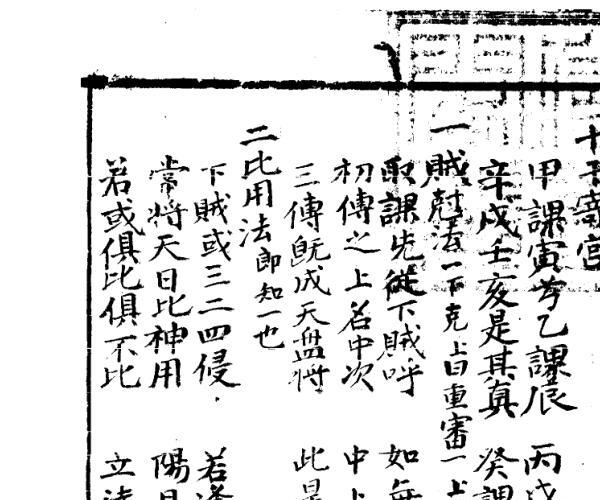 十干寄宮
甲課寅兮乙課辰 丙戊
辛戌壬亥是其真 癸課
一賊尅法一下克上曰重審一上
取課先從下賊呼 如無
初傳之上名中次 中上
三傳既成天盤將 此是
二比用法即知一也
下賊或三二四侵 若逢
常將天日比神用 陽日
若或俱比俱不比 立法